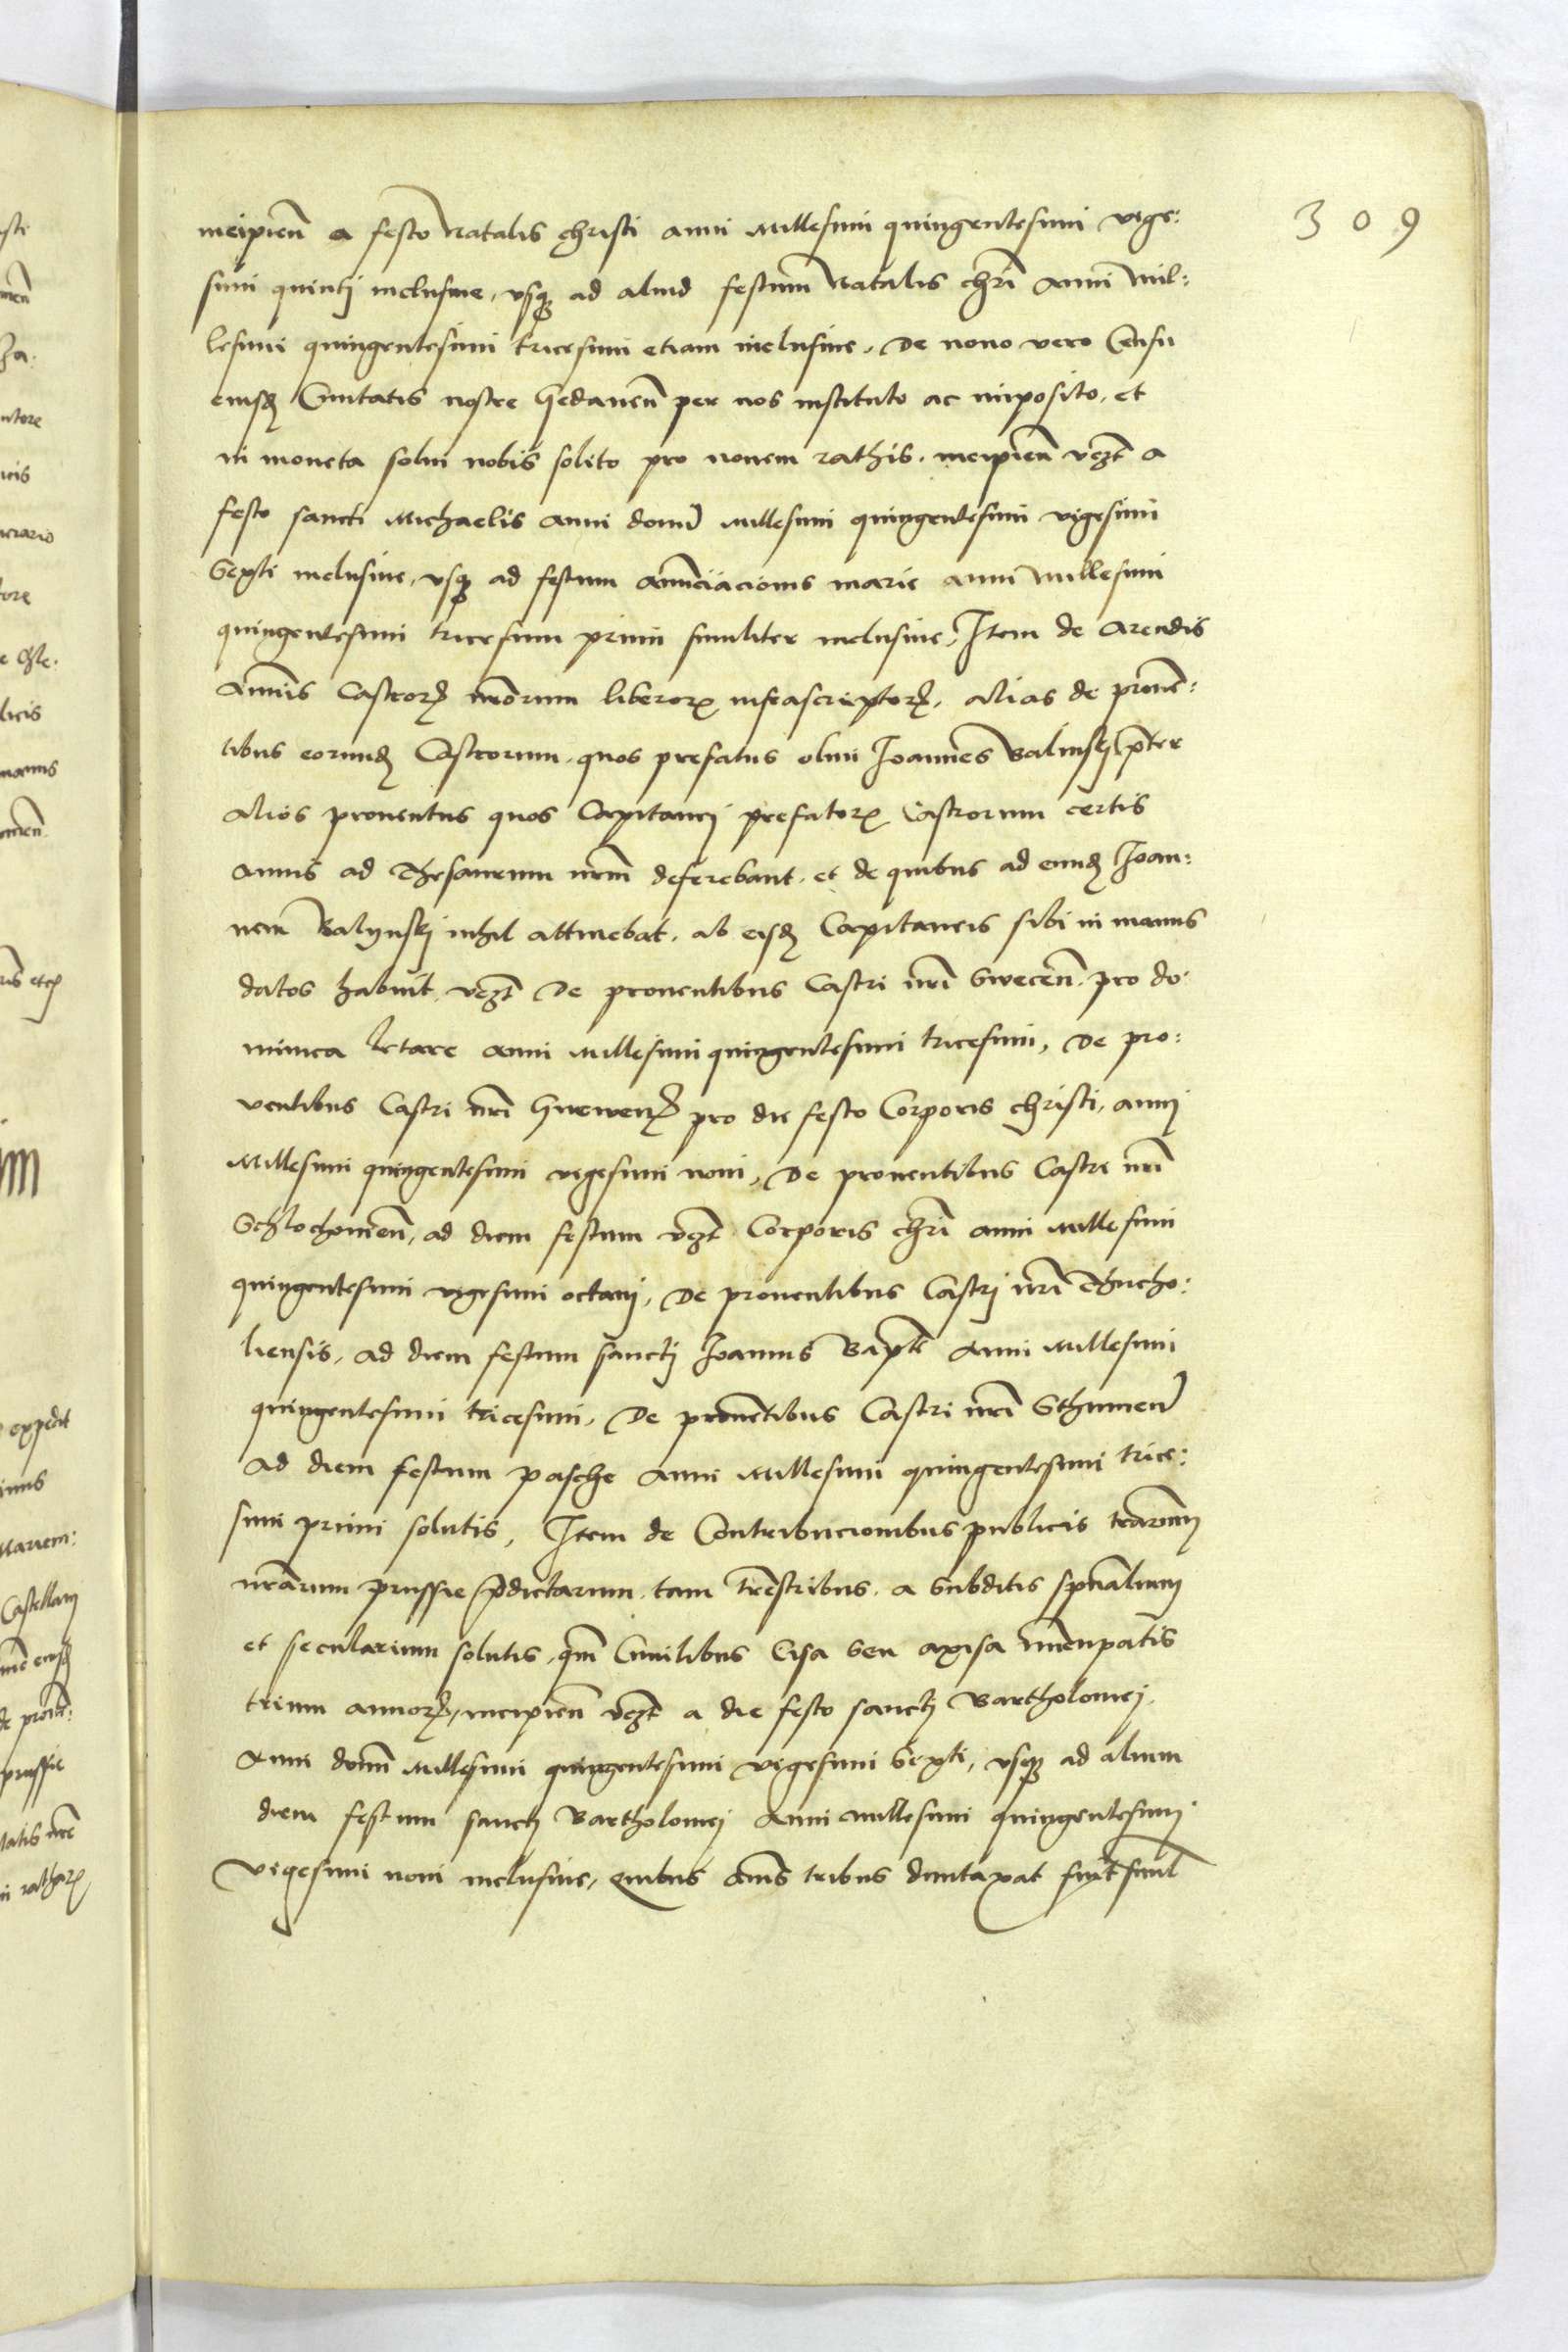 309
incipień a festo Natalis christi anni Millesimi quingentesimi vige:
simi quintj inclusiue, vsqȝ ad aliud festum Natalis chri̅ Anni Mil:
lesimi quingentesimi tricesimi etiam inclusiue. De nouo vero Censu
eiusdꝫ Ciuitatis nostre Gedaneń per nos instituto ac imposito, et
in moneta solui nobis solito pro nouem rathis. incipień vꝫt a
festo sancti Michaelis Anni domi̅ Millesimi quingentesimi vigesimi
Sexti inclusiue, vsqȝ ad festum Anu̅ciacionis marie anni Millesimi
quingentesimi tricesimi primi similiter inclusiue. Item de Arendis
Annis Castroꝝ nr̅orum liberoꝝ infrascriptoꝝ. Alias de prouē:
tibus eorundꝫ Castrorum. quos prefatus olim Joannes Balinskj p̅ter
Alios prouentus quos Capitanej prefatoꝝ Castrorum certis
Annis ad Thesaurum nrm̅ deferebant. et de quibus ad eundꝫ Joan:
nem Balynskj nihil attinebat. ab eisdꝫ Capitaneis sibi in manus
datos habuit. vꝫt De prouentibus Castri nri̅ Sweceń. pro do:
minica letare Anni Millesimi quingentesimi tricesimi, De pro:
uentibus Castri nri̅ Gneweń pro die festo Corporis christi, annj
Millesimi quingentesimi vigesimi noni, De prouentibus Castri nri̅
Schlochouień, ad diem festum vꝫt Corporis chri̅ anni Millesimi
quingentesimi vigesimi octauj, De prouentibus Castrj nri̅ Thucho:
liensis, ad diem festum sanctj Joannis Bapte̅ Anni Millesimi
quingentesimi tricesimi, De prouētibus Castri nri̅ Sthumeń
Ad diem festum pasche Anni Millesimi quingentesimi trice:
simi primi solutis, Item de Contribucionibus publicis terrarum
nr̅arum prussie p̅dictarum. tam tr̅estribus. a Subditis spu̅alium
et secularium solutis, qm̅ Ciuilibus Cisa seu axisa nuncupatis
trium annoꝝ, incipień vꝫt a die festo sanctj Bartholomej.
Anni domi̅ Millesimi quingentesimi vigesimi Sexti, vsqȝ ad alium
diem festum sanctj Bartholomej Anni Millesimi quingentesimj
vigesimi noni inclusiue, Quibus Annis tribus duntaxat